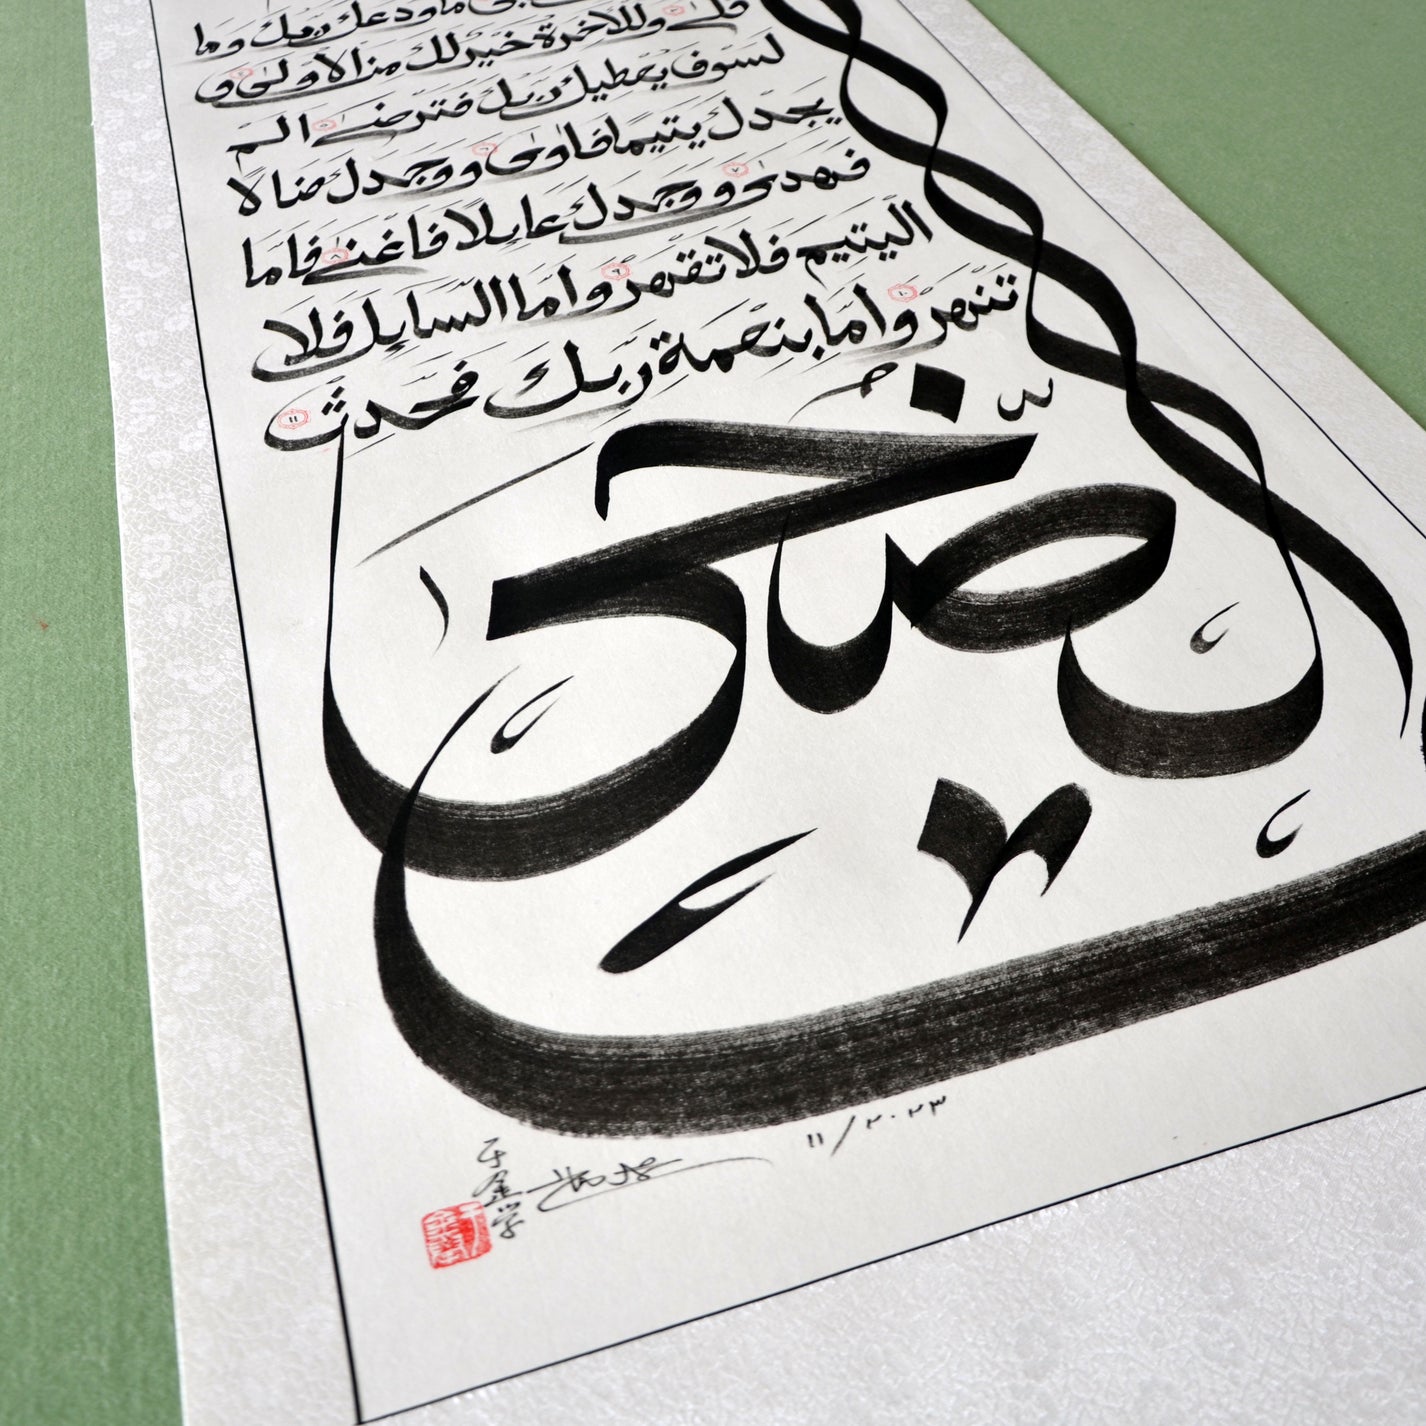 ما ودعك ربك وما
قلى ٣ وللاخرة خَيْر لك من الاولىٰ ٤ و
لسوف يعطيك ربك فترضىٰ ٥ الم
يجدك يتيمًا فاوىٰ ٦ ووجدك ضالا
فهدىٰ ٧ ووجدك عَايلًا فاغنىٰ ٨ فامَا
اليتيم فلا تقهرْ ٩ وامَا السَايل فلا
تنهرْ ١٠ وامَا بنعمة رَبك فحَدِثْ ١١
الضحى
١١/٢٠٢٣
于金学